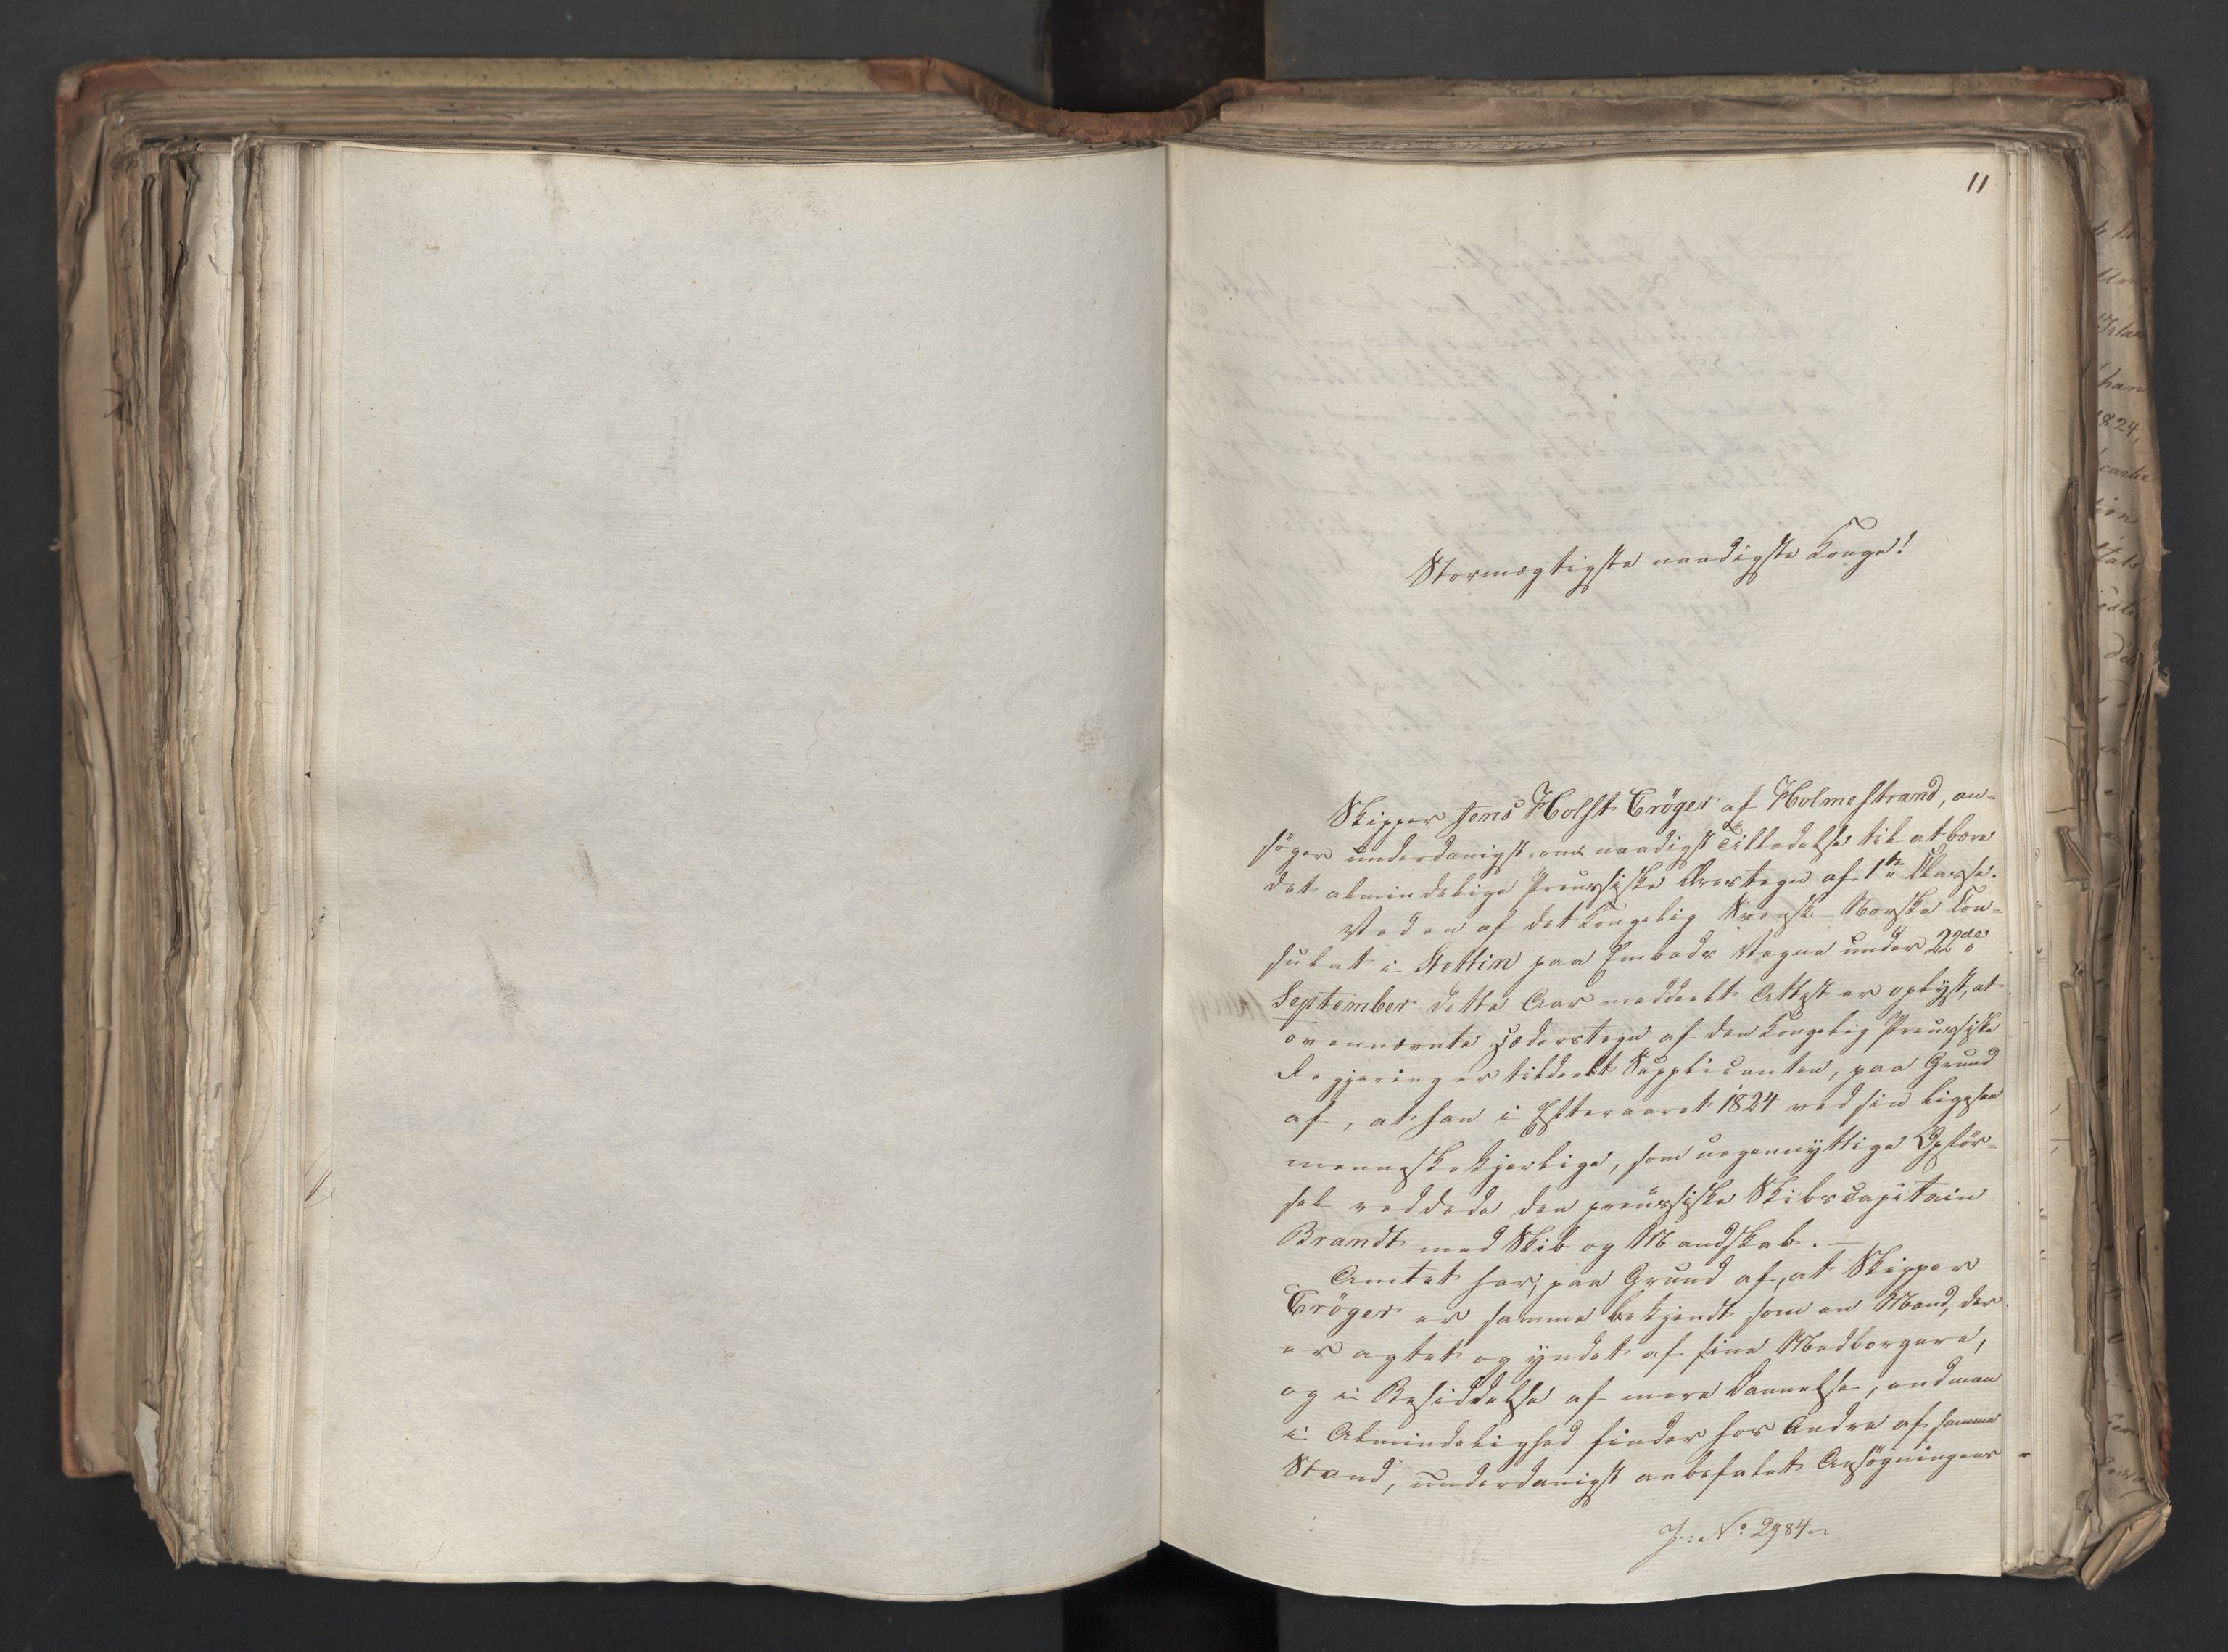 11
Stormægtigste naadigste Konge!
Skipper Jens Holst Cröger af Holmestrand, an-
söger underdanigst om naadigst Tilladelse til at bære
det almindelige Preussiske Ærestegn af 1ste Klasse.
Ved en af det Kongelig Svensk-Norske Con-
sulat i Stettin paa Embeds Vegne under 22de
September dette Aar meddeelt Attest er oplyst, at
ovennævnte Hæderstegn af den Kongelig Preussiske
Regjering er tildeelt Supplicanten, paa Grund
af, at han i Efteraaret 1824 ved sin ligesaa
menneskekjerlige, som uegennyttige Opför-
sel reddede den preussiske Skibscapitain
Brandt med Skib og Mandskab. —
Amtet har, paa Grund af, at Skipper
Cröger er samme bekjendt som en Mand, der
er agtet og yndet af sine Medborgere,
og i Besiddelse af mere Dannelse, end man
i Almindelighed finder hos Andre af samme
Stand, underdanigst anbefalet Ansögningens
J: No 2984